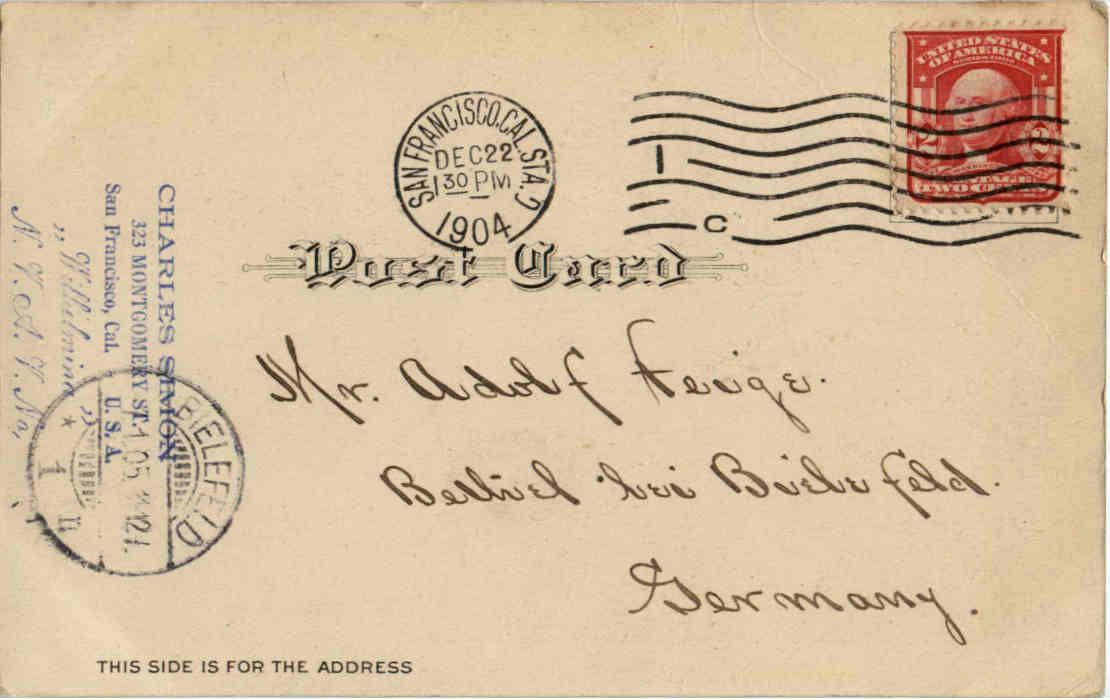 UNITED STATES
OF AMERICA
2 2
POSTAGE
TWO CENTS
SAN FRANCISCO, CAL. STA.
DEC 22
1 30 PM
1904
1
C
Post Card
Mr. Adolf Feige.
Bethel bei Bielefeld.
Germany.
CHARLES SIMON
323 MONTGOMERY ST.
San Francisco, Cal. U. S. A.
„ Wilhelmina „
N. V. A. V. No,
BIELEFELD
1 05
THIS SIDE IS FOR THE ADDRESS